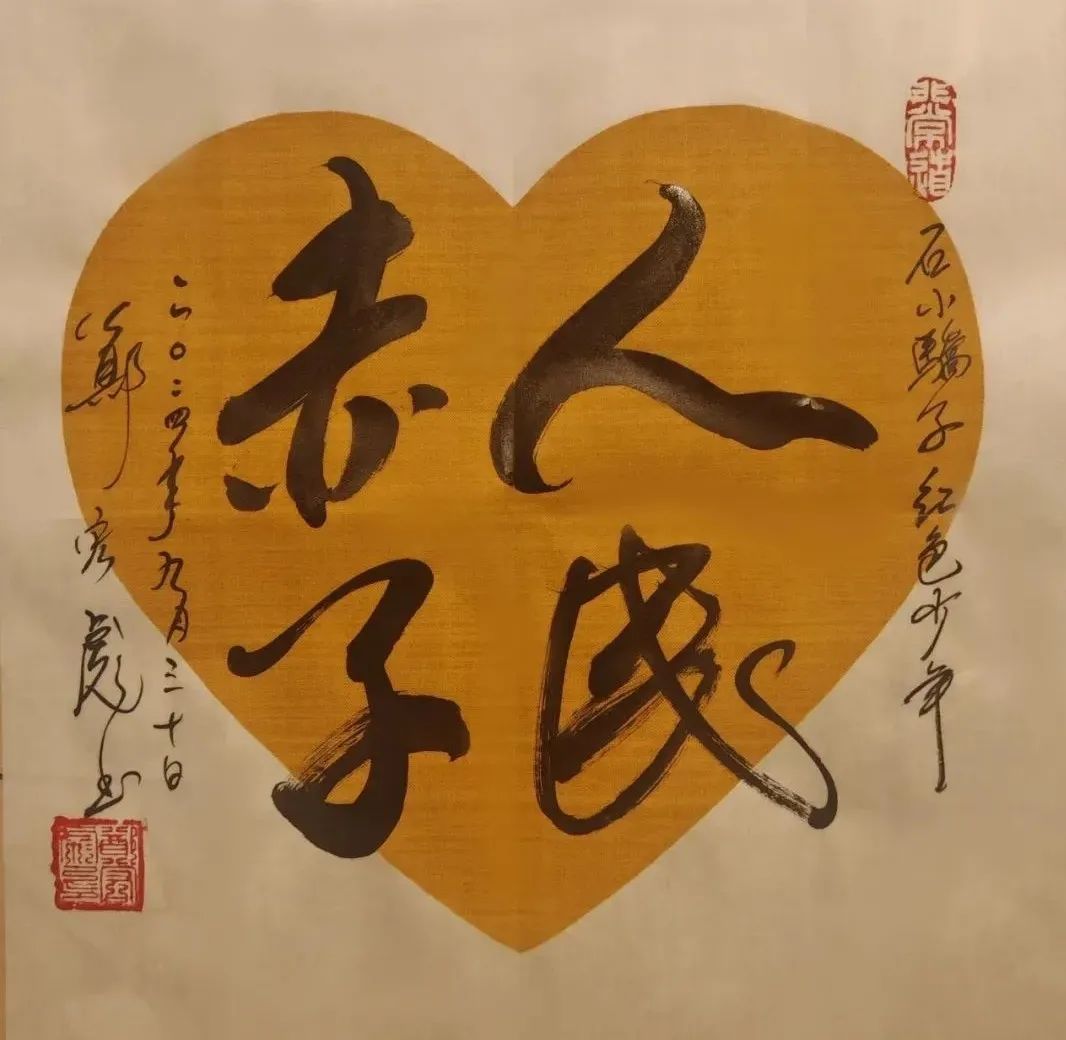 非常道
石小驕子红色少年
人民
赤子
二〇二四年九月三十日
鄭宏彪书